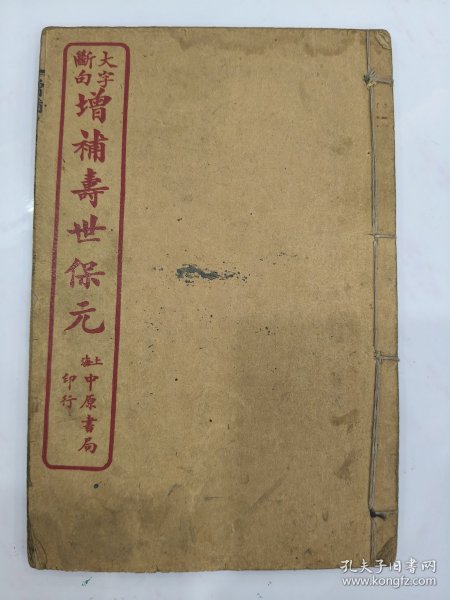 大字
斷句
增補壽世保元
上海
中原書局
印行
孔夫子旧书网
www.kongfz.com